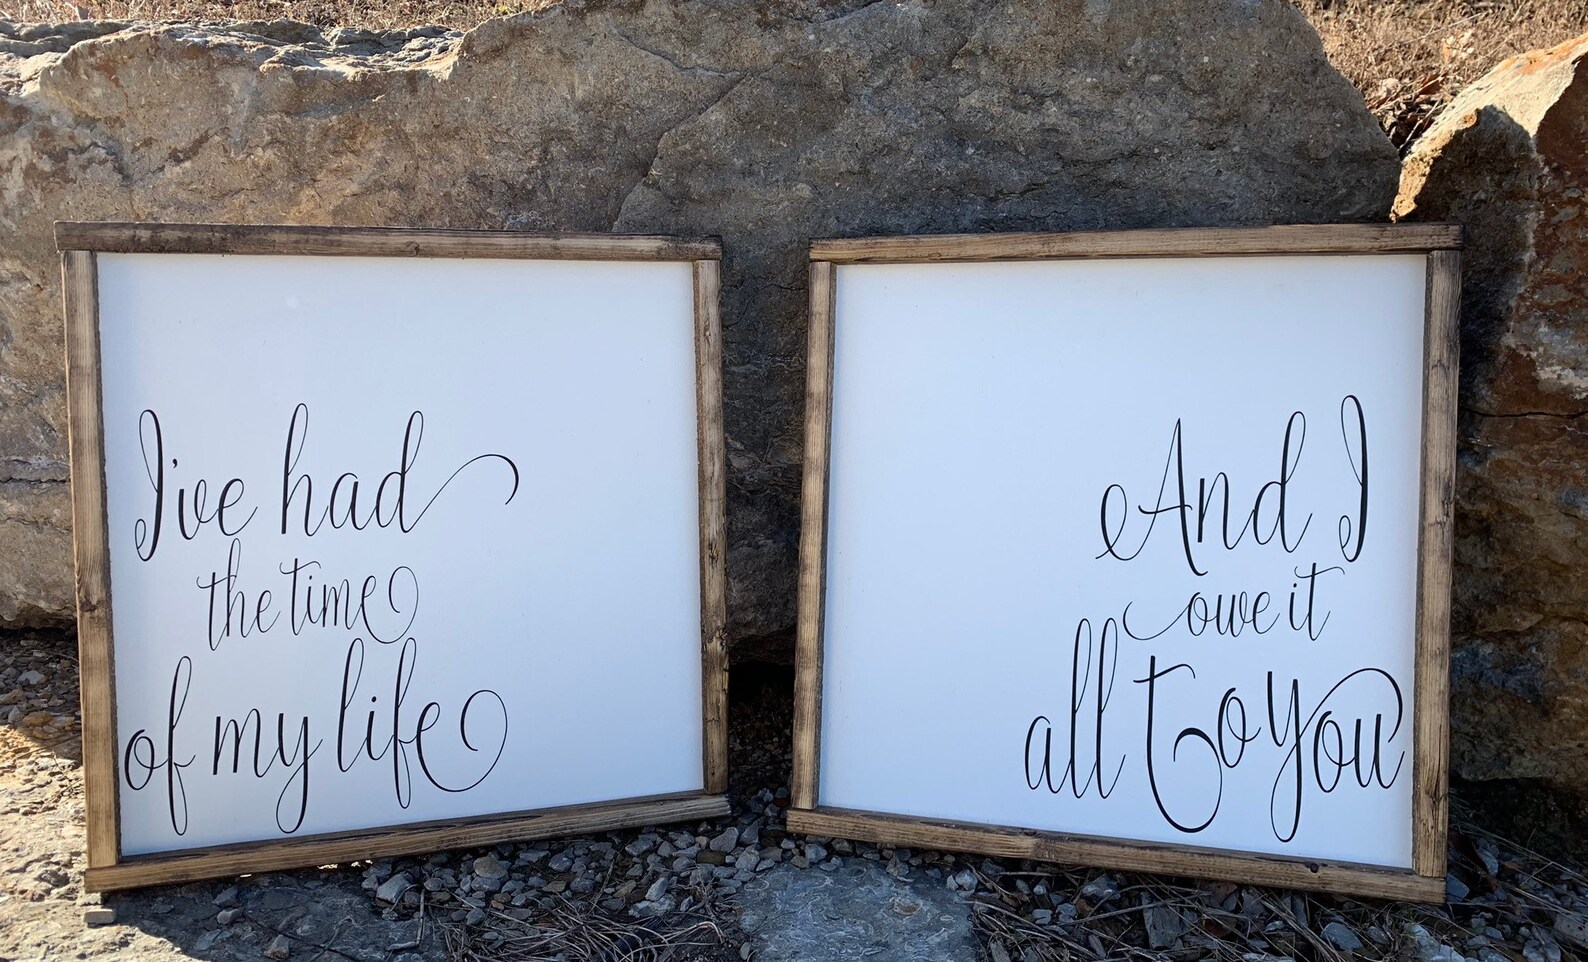 I've had
the time
of my life
And I
owe it
all to you